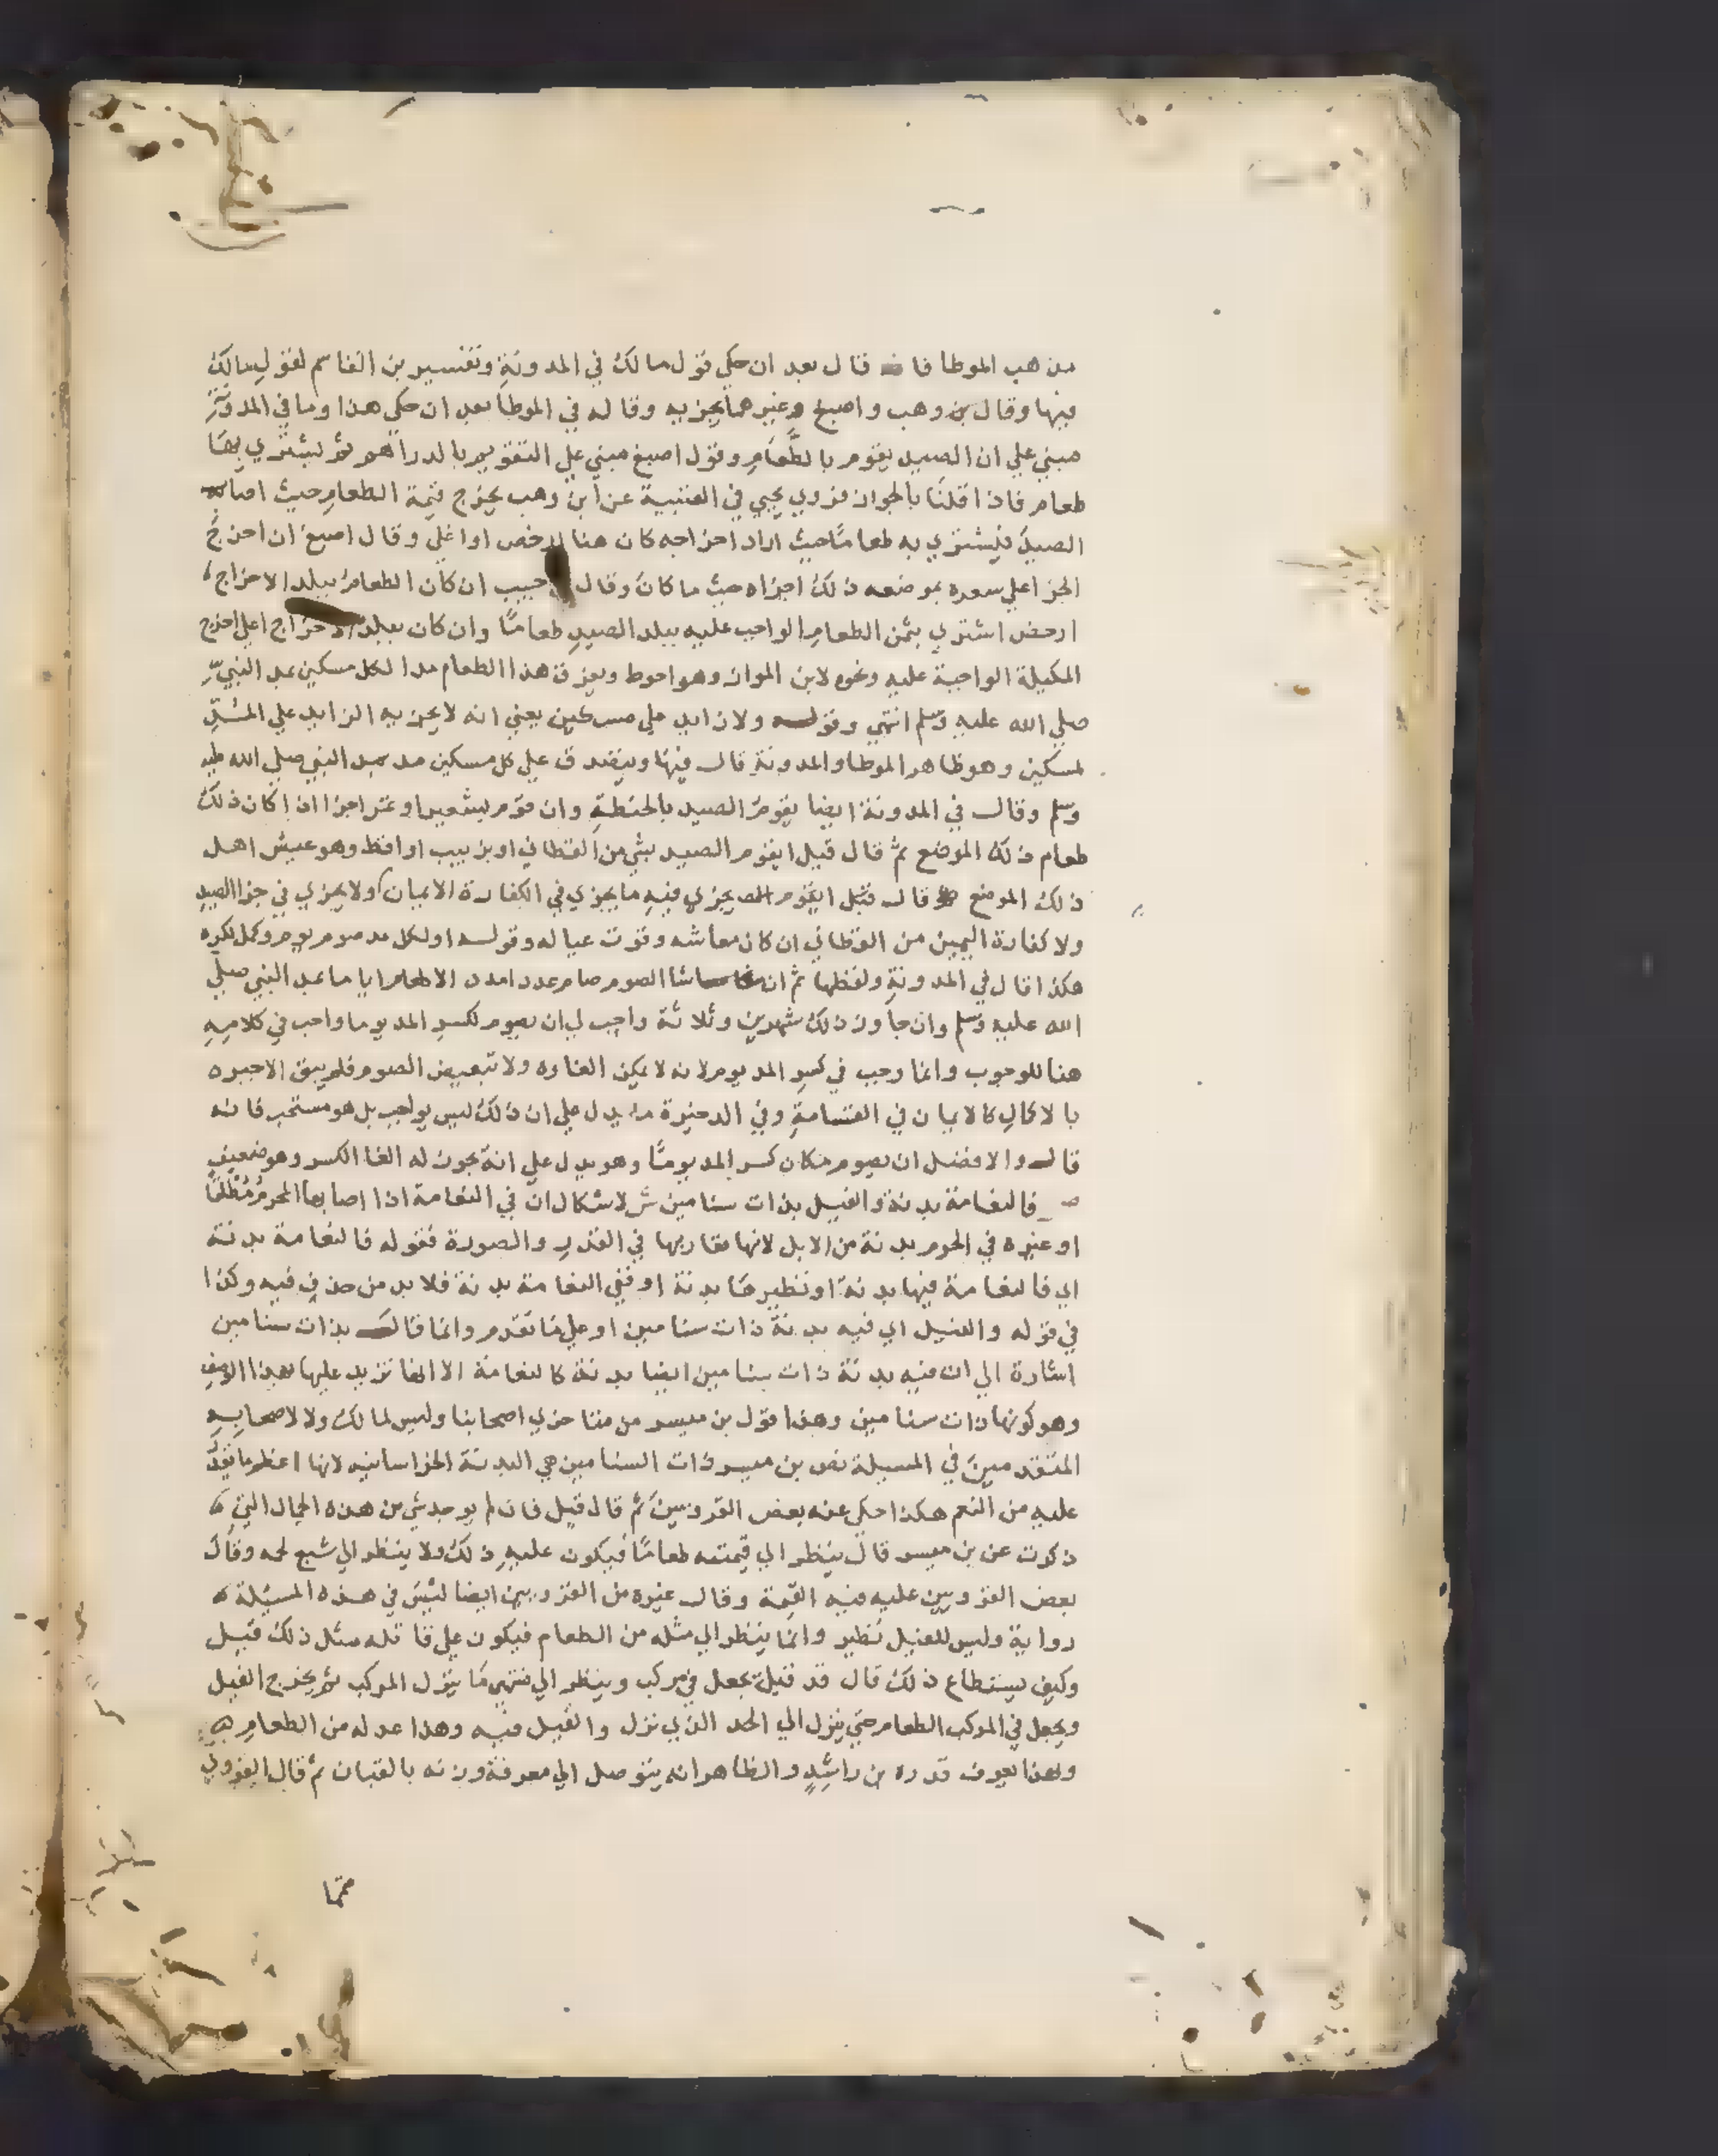 مذهب الموطا فانه قال بعد ان حكي قول مالك في المدونة وتفسير بن القاسم لقول مالك
فيها وقال بن وهب واصبغ وغيرهما يجزيه وقاله في الموطا بعد ان حكي هذا وما في المدونة
مبني علي ان الصيد يقوم بالطعام وقول اصبغ مبني علي التقويم بالدراهم ثم ليشتري بها
طعام فاذا قلنا بالجواز فروي يحيي في العتبية عن ابن وهب يخرج قيمة الطعام حيث اصابه
الصيد فليشتري به طعاما حيث اراد اخراجه كان هنا ارخص او اغلي وقال اصبغ ان اخرج
الجزا علي سعره بموضعه ذلك اجزاه حيث ما كان وقال حبيب ان كان الطعام ببلد الاخراج
ارخص اشتري بثمن الطعام الواجب عليه ببلد الصيد طعاما وان كان ببلد الاخراج اغلي اخرج
المكيلة الواجبة عليه ونحوه لابن المواز وهو احوط ويعزف هذا الطعام مدا لكل مسكين بمد النبي
صلي الله عليه وسلم انتهي وقوله ولا زايد علي مسكين يعني انه لا يجزيه الزايد علي المد
لمسكين وهو ظاهر الموطا والمدونة قال فيها ويتصدق علي كل مسكين مد بمد النبي صلي الله عليه
وسلم وقال في المدونة ايضا يقوم الصيد بالحنطة وان قوم بشعير او تمر اجزا اذا كان ذلك
طعام ذلك الموضع ثم قال قيل ايقوم الصيد بشي من القطاني او بزبيب او اقط وهو عيش اهل
ذلك الموضع قال قيل ايقوم يجزي فيه ما يجزي في الكفارة الايمان ولا يجزي في جزا الصيد
ولا كفارة اليمين من القطاني ان كان معاشه وقوت عياله وقوله او لكل مد صوم يوم وكمل لكسره
هكذا قال في المدونة ولفظها ثم ان شا الصوم صام عدد امداد الاطعام اياما بمد النبي صلي
الله عليه وسلم وان جاوز ذلك شهرين وثلاثة واجب لي ان يصوم لكسر المد يوما واجب في كلامه
هنا للوجوب وانما وجب في كسر المد يوم لانه لا يمكن الغاوه ولا تبعيض الصوم فلم يبق الا جبره
بالاكمال كالايمان في القسامة وفي الدخيرة ما يدل علي ان ذلك ليس بواجب بل هو مستحب فانه
قال والافضل ان يصوم مكان كسر المد يوما وهو يدل علي انه يجوز له الغا الكسر وهو ضعيف
ص فالنعامة بدنة والفيل بذات سنامين ش لا شكال ان في النعامة اذا اصابها المحرم مطلقا
او غيره في الحرم بدنة من الابل لانها مقاربها في القدر والصورة فقوله فالنعامة بدنة
اي فالنعامة فيها بدنة او نظيرها بدنة او ففي النعامة بدنة فلا بد من حذف فيه وكذا
في قوله والفيل اي فيه بدنة ذات سنامين او علي ما تقدم وانما قال بذات سنامين
اشارة الي ان فيه بدنة ذات سنامين ايضا بدنة كالنعامة الا انها تزيد عليها بهذا الوصف
وهو كونها ذات سنامين وهذا قول بن ميسر من متاخري اصحابنا وليس لمالك ولا لاصحابه
المتقدمين في المسيلة نص بن ميسر ذات السنامين هي البدنة الخراسانيه لانها اعظم ما يقدر
عليه من النعم هكذا حكي عنه بعض القرويين ثم قال قيل فان لم يوجد شي من هذه الجمال التي
ذكرت عن بن ميسر قال ينظر الي قيمته طعاما فيكون عليه ذلك ولا ينظر الي شبع لحمه وقال
بعض القرويين عليه فيه القيمة وقال غيره من القرويين ايضا ليس في هذه المسيلة
رواية وليس للفيل نظير وانما ينظر الي مثله من الطعام فيكون علي قاتله مثل ذلك قيل
وكيف يستطاع ذلك قال قد قيل يجعل في مركب وينظر الي منتهي ما ينزل المركب ثم يخرج الفيل
ويجعل في المركب الطعام حتي ينزل الي الحد الذي نزل والفيل فيه وهذا عدله من الطعام
وبهذا يعرف قدره بن راشد والظاهر انه يتوصل الي معرفة وزنه بالقبان ثم قال القروي
مما